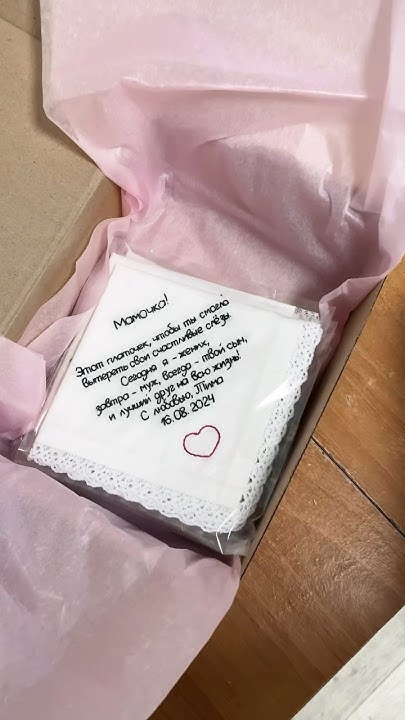 Мамочка!
Этот платочек, чтобы ты смогла
вытереть свои счастливые слёзы.
Сегодня я - жених,
завтра - муж, всегда - твой сын,
и лучший друг на всю жизнь!
С любовью, Тима
16.08.2024